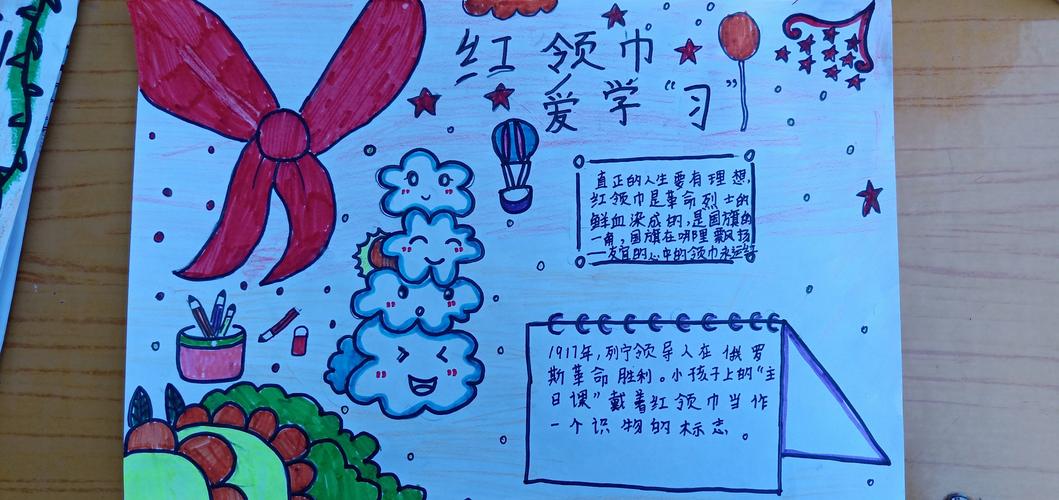 红领巾
爱学“习”
直正的人生要有理想,
红领巾是革命烈士的
鲜血染成的,是国旗的
一角,国旗在哪里飘扬
1917年,列宁领导人在俄罗
斯革命胜利。小孩子上的“主
日课”戴着红领巾当作
一个识物的标志。